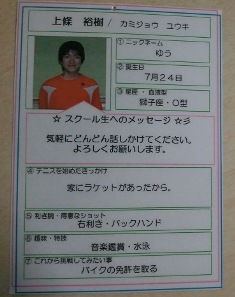 上條 裕樹 / カミジョウ ユウキ
①ニックネーム
ゆう
②誕生日
7月24日
③星座・血液型
獅子座・O型
☆ スクール生へのメッセージ ☆彡
気軽にどんどん話しかけてください。
よろしくお願いします。
④テニスを始めたきっかけ
家にラケットがあったから。
⑤利き腕・得意なショット
右利き・バックハンド
⑥趣味・特技
音楽鑑賞・水泳
⑦これから挑戦してみたい事
バイクの免許を取る